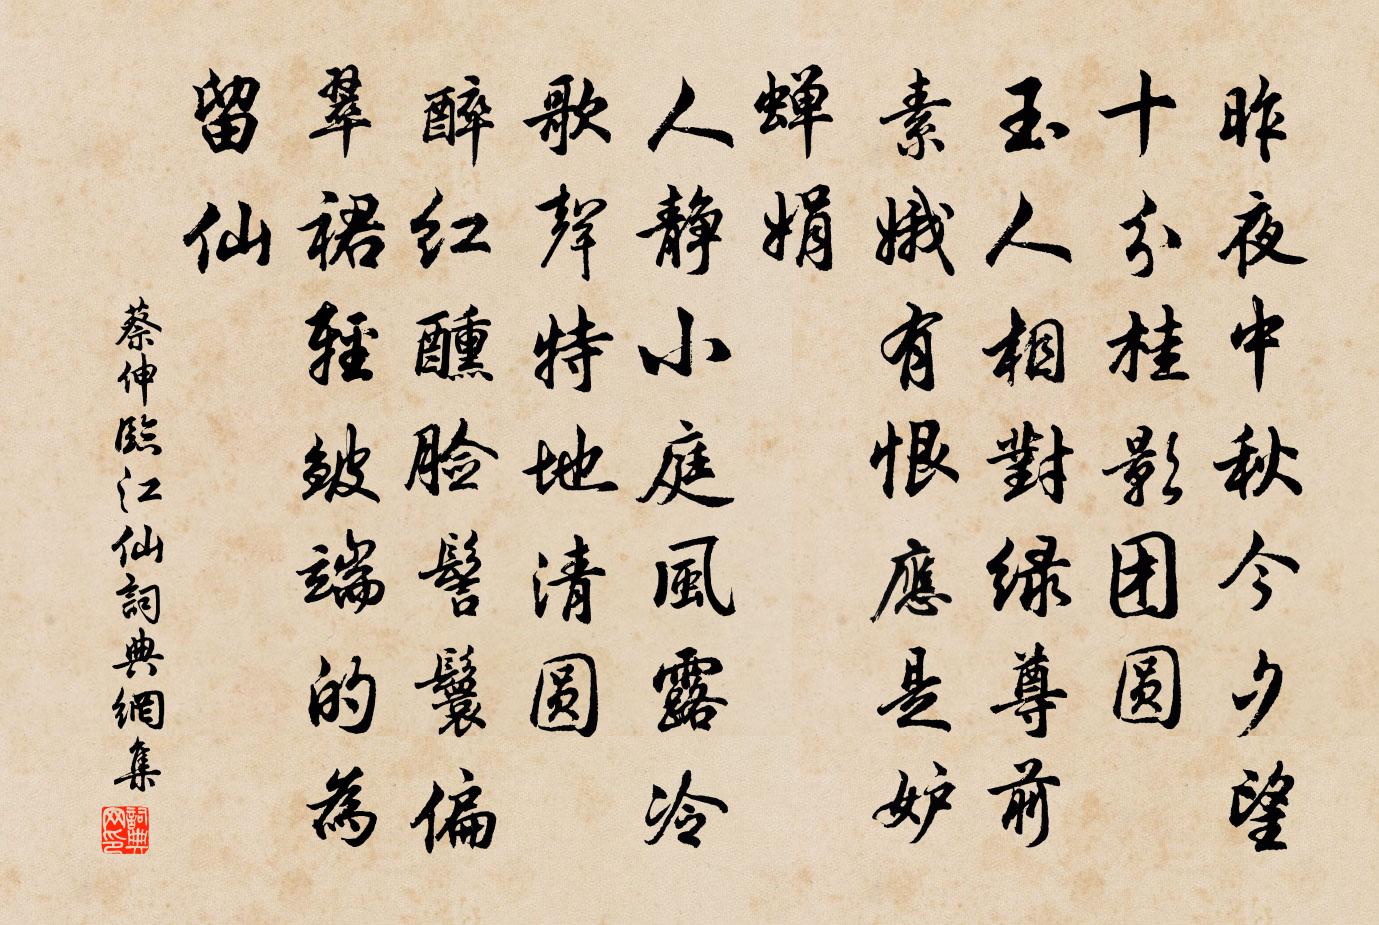 昨夜中秋今夕望
十分桂影团圆
玉人相對緑尊前
素娥有恨應是妒
蝉娟
人静小庭風露冷
歌聲特地清圆
醉红醺脸髻鬟偏
翠裙輕皴端的為
留仙
蔡伸臨江仙詞典網集
詞典网印